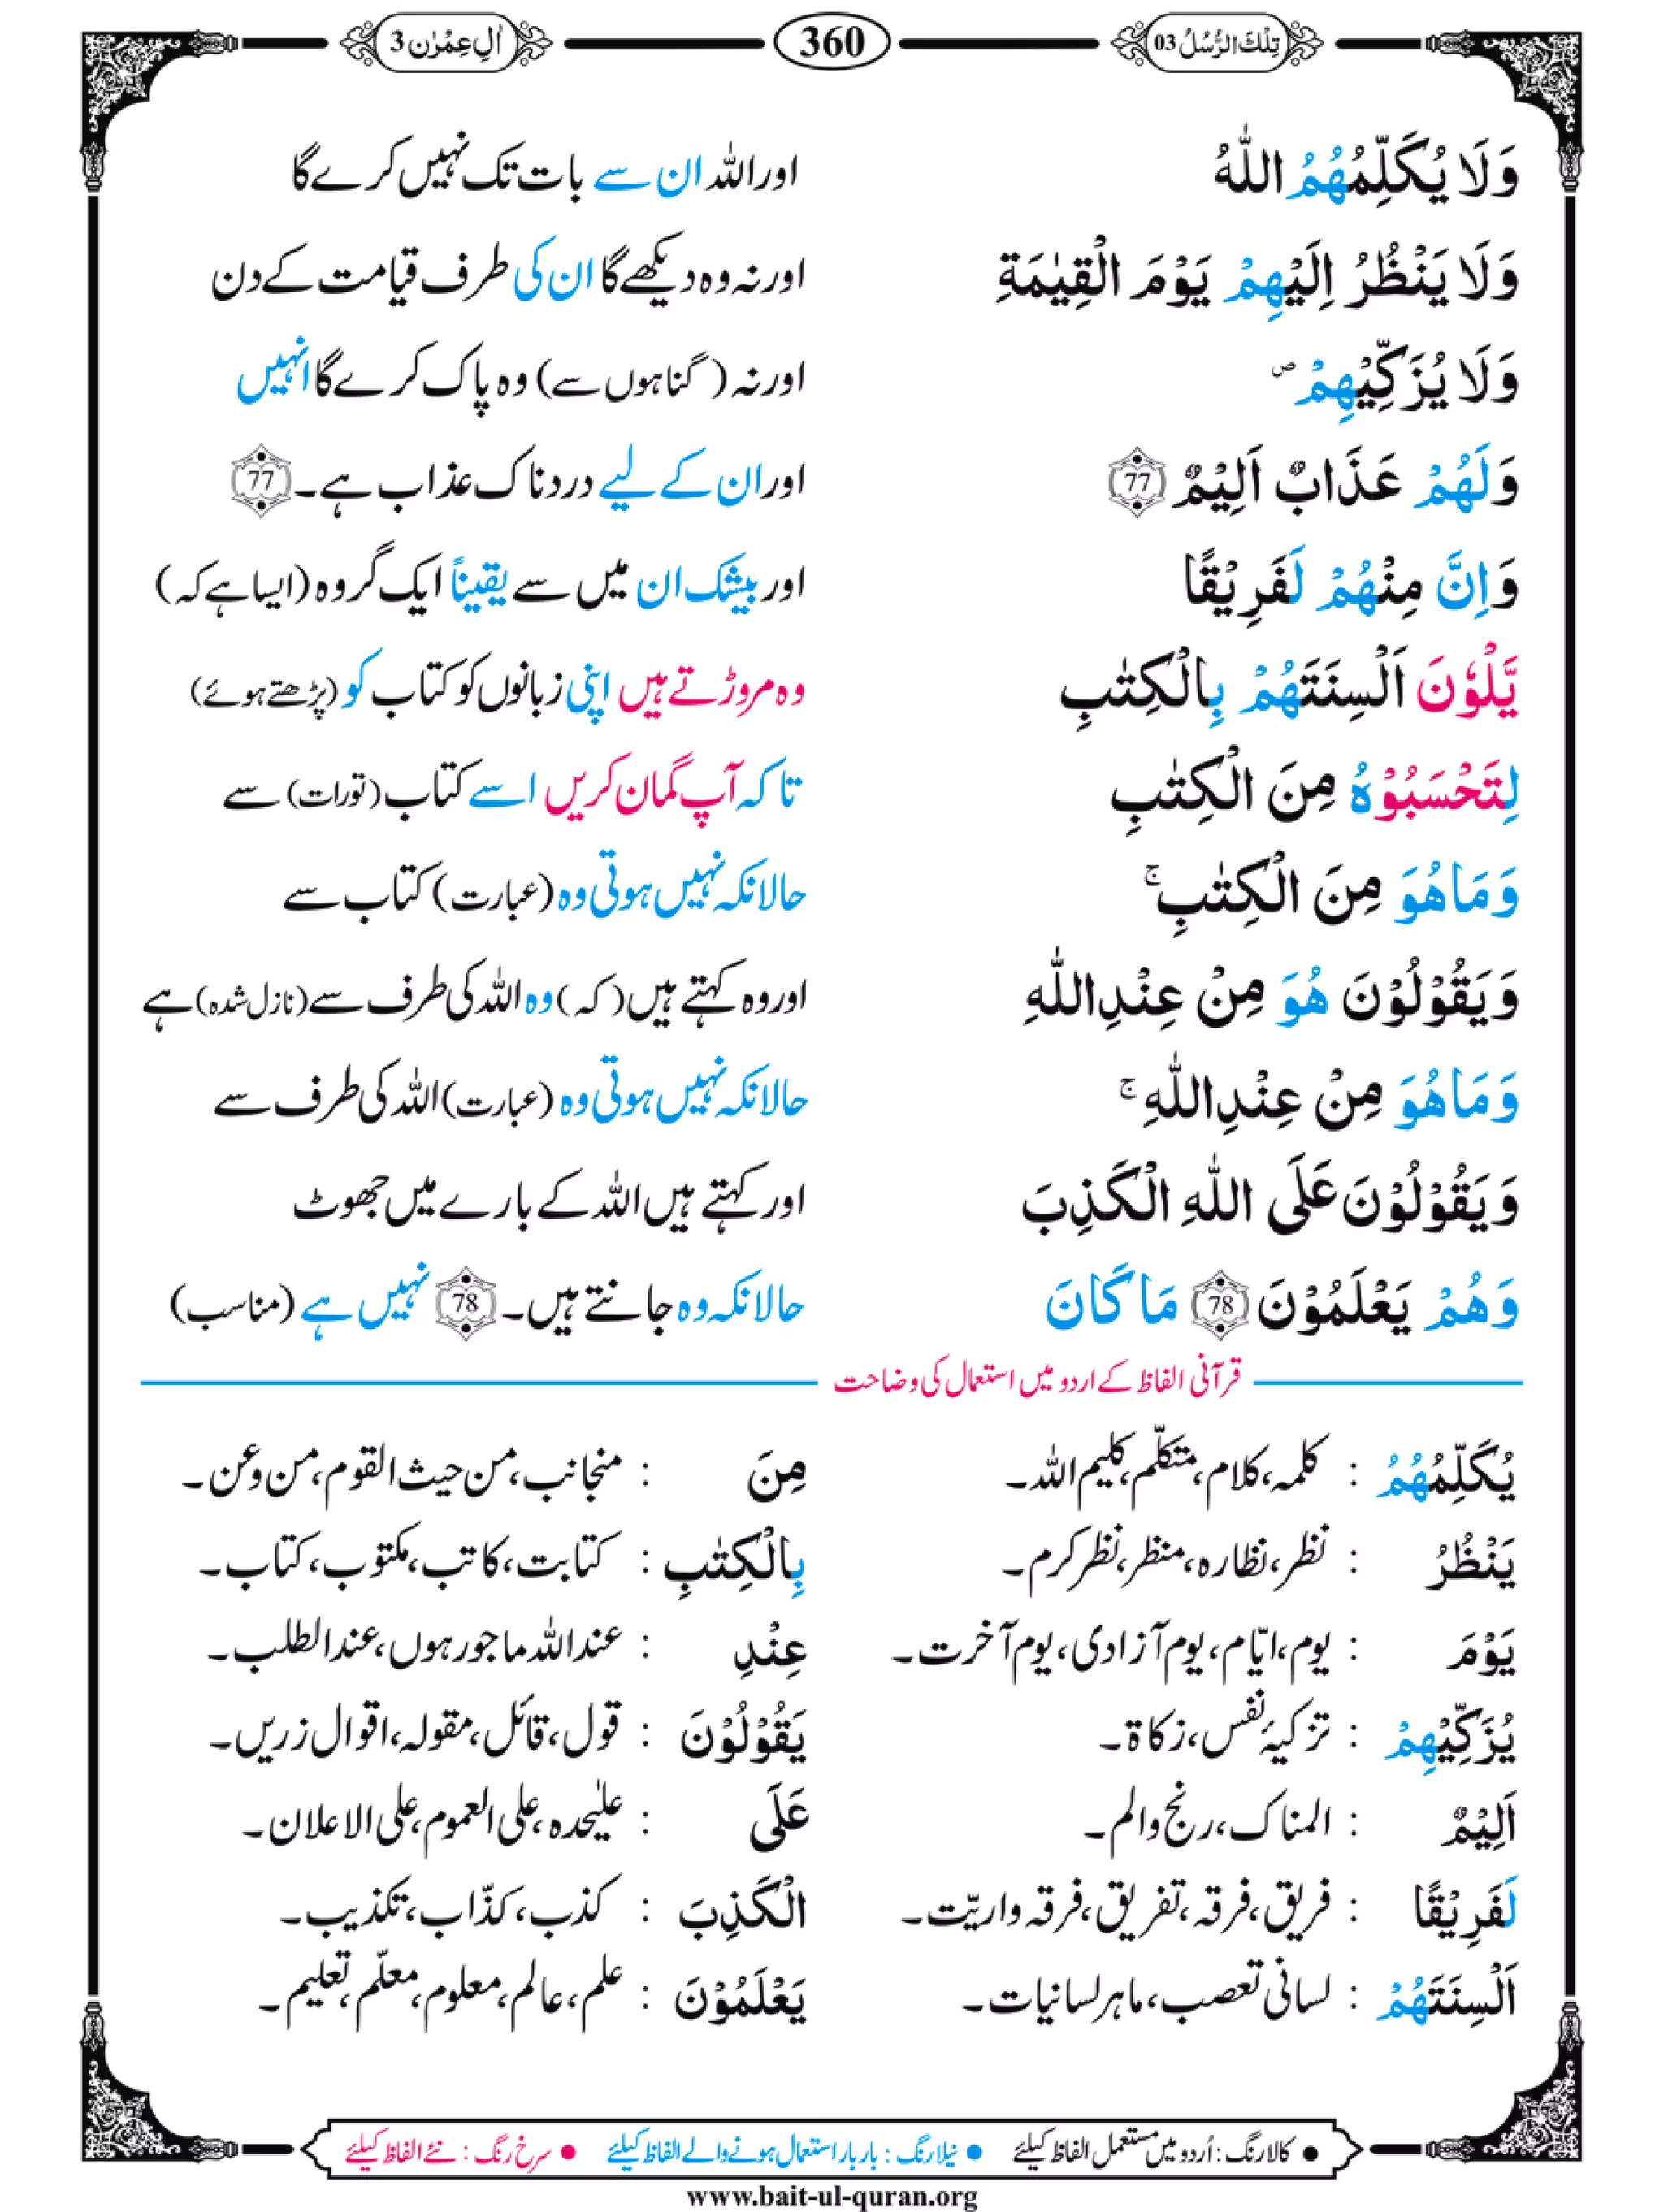 تِلْكَ الرُّسُلُ 03 360 اٰلِ عِمْرٰن 3
وَلَا يُكَلِّمُهُمُ اللّٰهُ اور اللہ ان سے بات تک نہیں کرے گا
وَلَا يَنْظُرُ اِلَيْهِمْ يَوْمَ الْقِيٰمَةِ اور نہ وہ دیکھے گا ان کی طرف قیامت کے دن
وَلَا يُزَكِّيْهِمْ ۖ اور نہ (گناہوں سے) وہ پاک کرے گا انہیں
وَلَهُمْ عَذَابٌ اَلِيْمٌ 77 اور ان کے لیے دردناک عذاب ہے۔ 77
وَاِنَّ مِنْهُمْ لَفَرِيْقًا اور بیشک ان میں سے یقیناً ایک گروہ (ایسا ہے کہ)
يَّلْوٗنَ اَلْسِنَتَهُمْ بِالْكِتٰبِ وہ مروڑتے ہیں اپنی زبانوں کو کتاب کو (پڑھتے ہوئے)
لِتَحْسَبُوْهُ مِنَ الْكِتٰبِ تاکہ آپ گمان کریں اسے کتاب (تورات) سے
وَمَا هُوَ مِنَ الْكِتٰبِ ۚ حالانکہ نہیں ہوتی وہ (عبارت) کتاب سے
وَيَقُوْلُوْنَ هُوَ مِنْ عِنْدِ اللّٰهِ اور وہ کہتے ہیں (کہ) وہ اللہ کی طرف سے (نازل شدہ) ہے
وَمَا هُوَ مِنْ عِنْدِ اللّٰهِ ۚ حالانکہ نہیں ہوتی وہ (عبارت) اللہ کی طرف سے
وَيَقُوْلُوْنَ عَلَى اللّٰهِ الْكَذِبَ اور کہتے ہیں اللہ کے بارے میں جھوٹ
وَهُمْ يَعْلَمُوْنَ 78 مَا كَانَ حالانکہ وہ جانتے ہیں۔ 78 نہیں ہے (مناسب)
قرآنی الفاظ کے اردو میں استعمال کی وضاحت
يُكَلِّمُهُمُ : کلمہ، کلام، متکلّم، کلیم اللہ۔ مِنَ : منجانب، من حیث القوم، من وعن۔
يَنْظُرُ : نظر، نظارہ، منظر، نظر کرم۔ بِالْكِتٰبِ : کتابت، کاتب، مکتوب، کتاب۔
يَوْمَ : یوم، ایّام، یوم آزادی، یوم آخرت۔ عِنْدِ : عنداللہ ماجور ہوں، عندالطلب۔
يُزَكِّيْهِمْ : تزکیۂ نفس، زکاۃ۔ يَقُوْلُوْنَ : قول، قائل، مقولہ، اقوال زریں۔
اَلِيْمٌ : المناک، رنج والم۔ عَلَى : علیٰحدہ، علی العموم، علی الاعلان۔
لَفَرِيْقًا : فریق، فرقہ، تفریق، فرقہ واریّت۔ الْكَذِبَ : کذب، کذّاب، تکذیب۔
اَلْسِنَتَهُمْ : لسانی تعصب، ماہر لسانیات۔ يَعْلَمُوْنَ : علم، عالم، معلوم، معلّم، تعلیم۔
● کالا رنگ : اُردو میں مستعمل الفاظ کیلئے ● نیلا رنگ : بار بار استعمال ہونے والے الفاظ کیلئے ● سرخ رنگ : نئے الفاظ کیلئے
www.bait-ul-quran.org